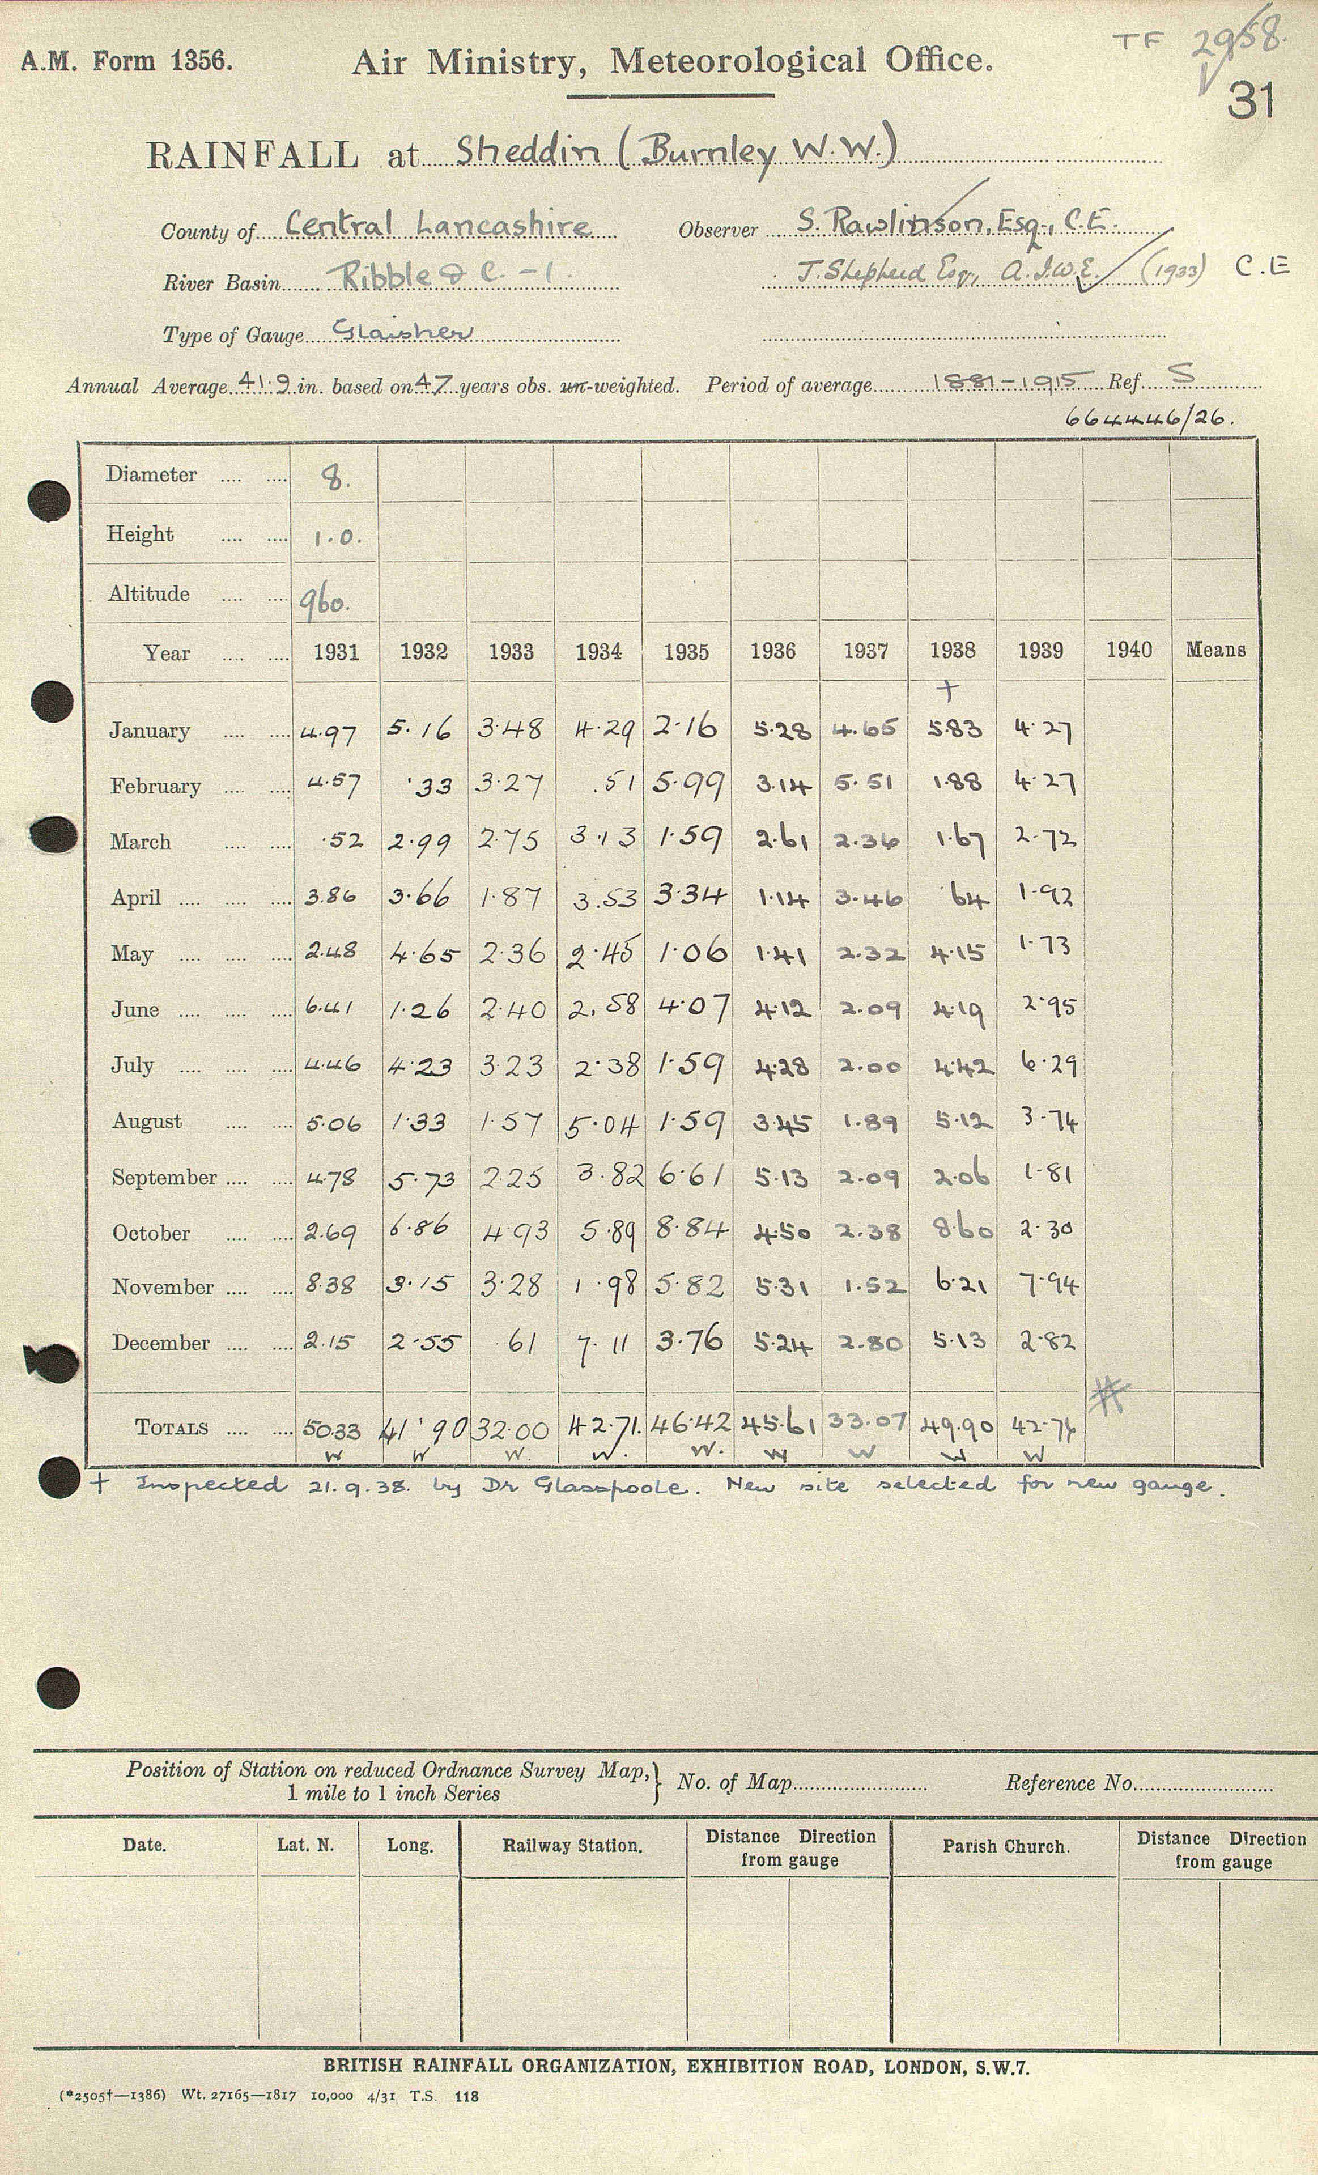 TF 2958.
A.M. Form 1356.
Air Ministry, Meteorological Office.
31
RAINFALL at Sheddin (Burnley W.W.)
County of Central Lancashire Observer S. Rawlinson, Esq., C.E.
River Basin Ribble & C. - 1. J. Shepherd Esq., A.I.W.E. (1933) C.E
Type of Gauge Glaisher
Annual Average 41.9 in. based on 47 years obs. un-weighted. Period of average 1881-1915 Ref. S
664446/26.
Diameter 8.
Height 1.0.
Altitude 960.
Year 1931 1932 1933 1934 1935 1936 1937 1938 1939 1940 Means
+
January 4.97 5.16 3.48 4.29 2.16 5.28 4.65 5.83 4.27
February 4.57 .33 3.27 .51 5.99 3.14 5.51 1.88 4.27
March .52 2.99 2.75 3.13 1.59 2.61 2.36 1.67 2.72
April 3.86 3.66 1.87 3.53 3.34 1.14 3.46 .64 1.92
May 2.48 4.65 2.36 2.45 1.06 1.41 2.32 4.15 1.73
June 6.41 1.26 2.40 2.58 4.07 4.12 2.09 4.19 2.95
July 4.46 4.23 3.23 2.38 1.59 4.28 2.00 4.42 6.29
August 5.06 1.33 1.57 5.04 1.59 3.45 1.89 5.12 3.74
September 4.78 5.73 2.25 3.82 6.61 5.13 2.09 2.06 1.81
October 2.69 6.86 4.93 5.89 8.84 4.50 2.38 8.60 2.30
November 8.38 3.15 3.28 1.98 5.82 5.31 1.52 6.21 7.94
December 2.15 2.55 .61 7.11 3.76 5.24 2.80 5.13 2.82
TOTALS 50.33 41.90 32.00 42.71 46.42 45.61 33.07 49.90 42.76 #
W W W W. W. W W W W
+ Inspected 21.9.38. by Dr Glasspoole. New site selected for new gauge.
Position of Station on reduced Ordnance Survey Map, 1 mile to 1 inch Series } No. of Map Reference No.
Date. Lat. N. Long. Railway Station. Distance Direction from gauge Parish Church. Distance Direction from gauge
BRITISH RAINFALL ORGANIZATION, EXHIBITION ROAD, LONDON, S.W.7.
(*2505†—1386) Wt. 27165—1817 10,000 4/31 T.S. 118